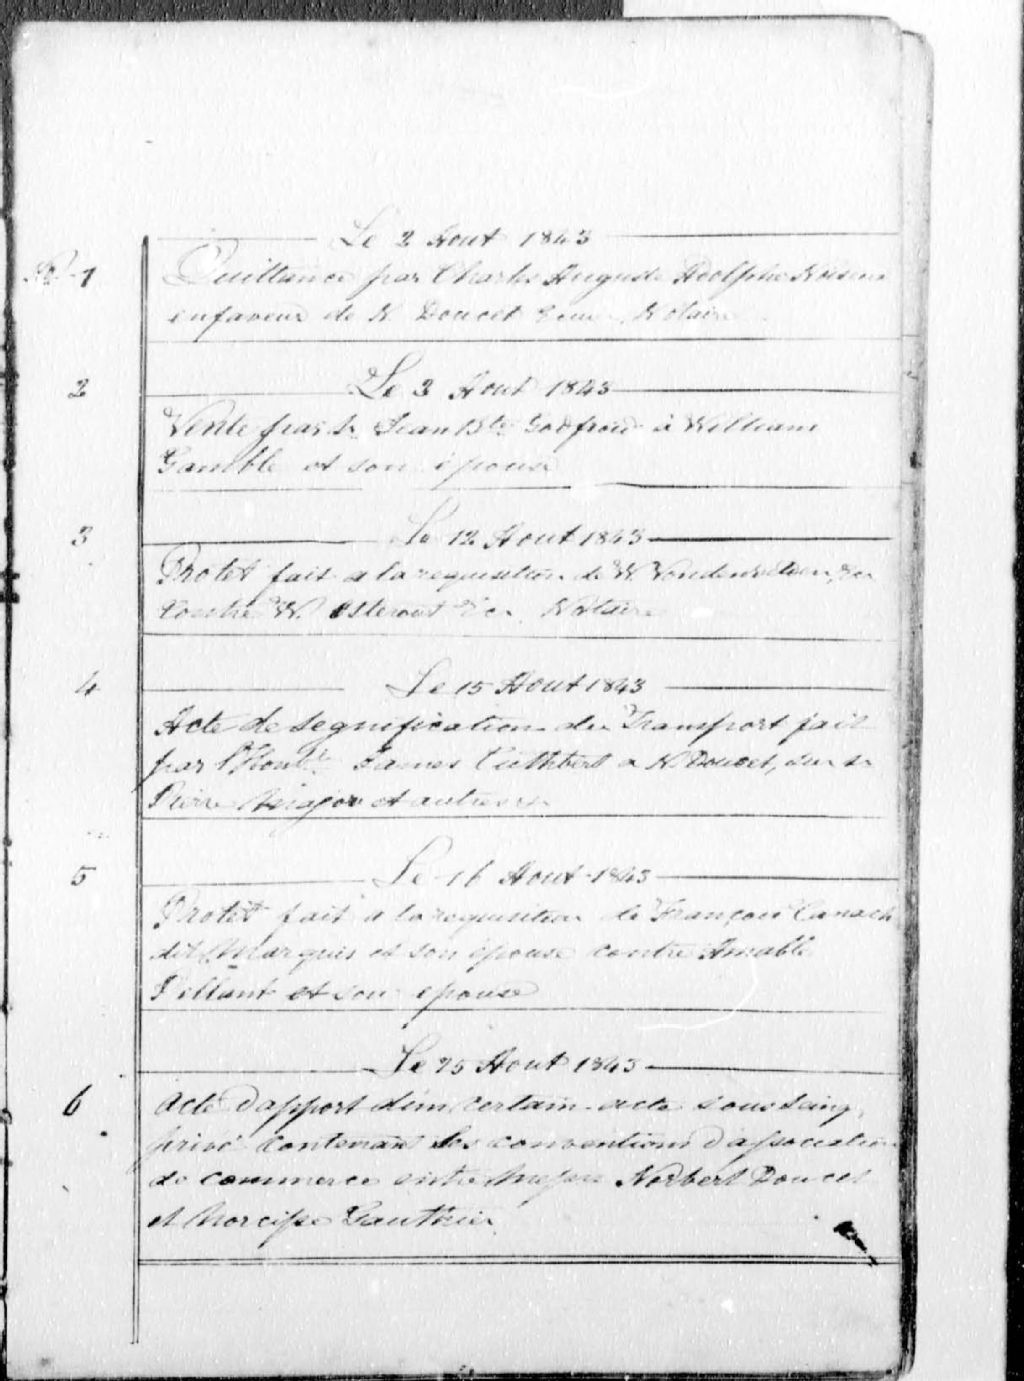 Le 2 Aout 1843
No 1 Quittance par Charles Auguste Adolphe
enfaveur de N. Doucet Notaire
Le 3 Aout 1843
2 Vente par Sr Jean Bte Godfroid à William
Gamble et son épouse
Le 12 Aout 1843
3 Protêt fait a la requisition de W.
Contre W. Notaire
Le 15 Aout 1843
4 Acte de Segnification du Transport fait
par l'Honble James Cuthbert a N. Doucet,
Pierre Major et autres
Le 16 Aout 1843
5 Protêt fait a la requisition de François
dit Marquis et son épouse contre Amable
et son epouse
Le 25 Aout 1843
6 Acte D'apport d'un certain acte sous Seing
privé Contenant les conventions D'association
de commerce entre Norbert Doucet
et Norcisse Gauthier